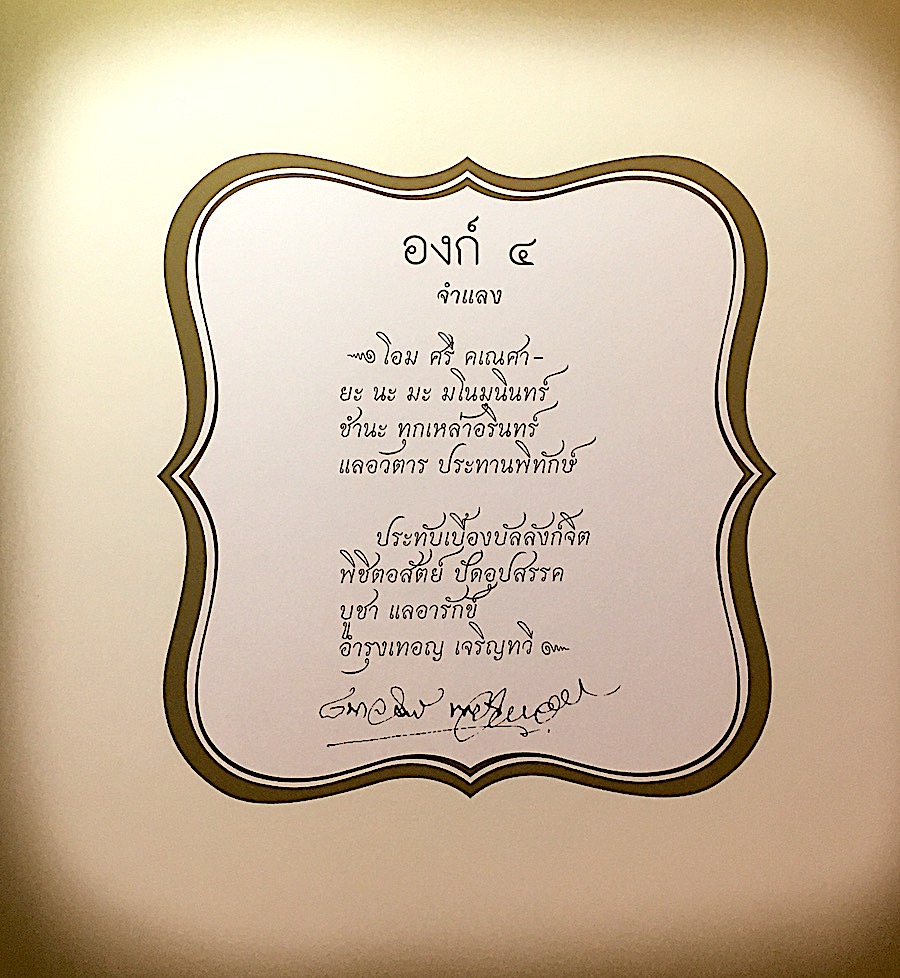 องก์ ๔
จำแลง
๛โอม ศรี คเณศา-
ยะ นะ มะ มโนมุนินทร์
ชำนะ ทุกเหล่าอรินทร์
แลอวตาร ประทานพิทักษ์
ประทับเบื้องบัลลังก์จิต
พิชิตอสัตย์ ปัดอุปสรรค
บูชา แลอารักข์
อำรุงเทอญ เจริญทวี ๛